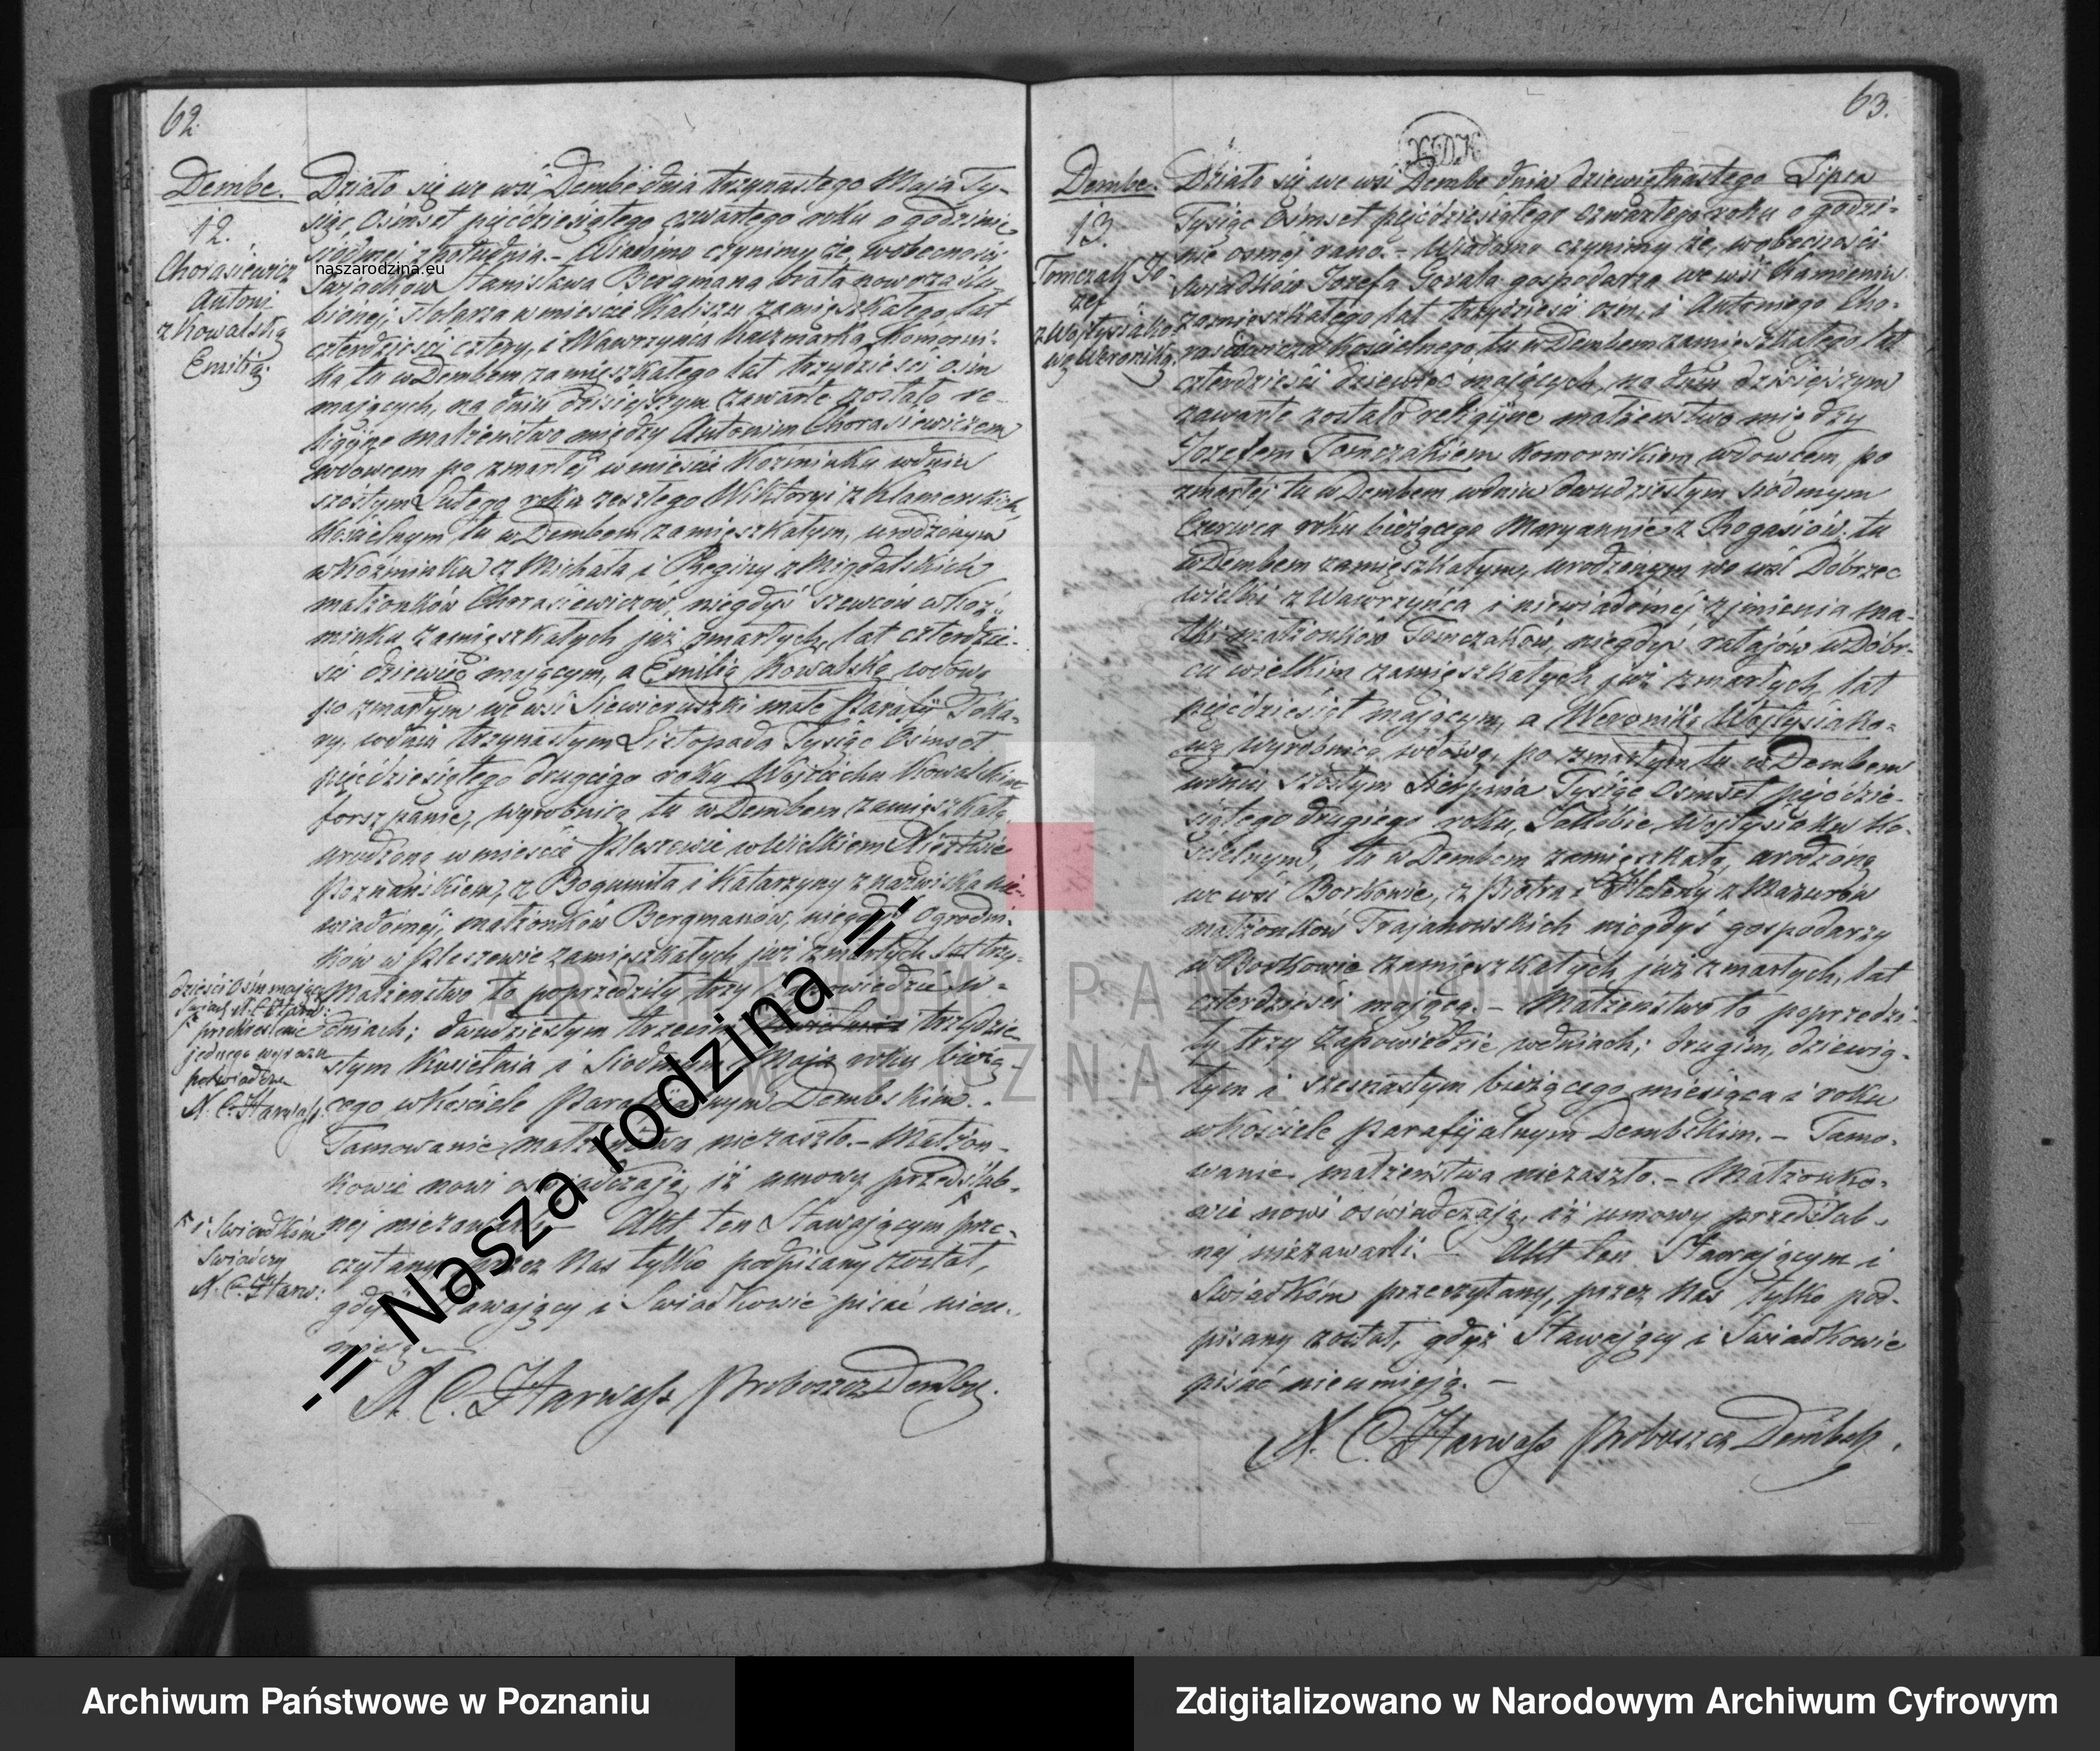 62.
Dembe.
12.
Chorasiewicz
Antoni
z Kowalską
Emilią.
Działo się we wsi Dembe dnia trzynastego Maja Ty-
siąc Osimset pięćdziesiątego czwartego roku o godzinie
siódmej z południa.- Wiadomo czynimy że, w obecności
naszarodzina.eu
Świadków Stanisława Bergmana brata nowozaślu-
bionej, stolarza w mieście Kaliszu zamięszkałego, lat
czterdzieści cztery, i Wawrzyńca Kaczmarka, Komorni-
ka tu w Dembem zamięszkałego lat trzydzieści osim
mających, na dniu dzisiejszym zawarte zostało re-
ligijne małżeństwo między Antonim Chorasiewiczem
wdowcem po zmarłej w mieście Koźminku w dniu
szóstym Lutego roku zeszłego Wiktoryi z Klamerskich,
Kościelnym tu w Dembem zamięszkałym, urodzonym
w Koźminku z Michała i Reginy z Migdalskich
małżonków Chorasiewiczów, niegdyś szewców w Koź-
minku zamięszkałych już zmarłych, lat czterdzie-
ści dziewięć mającym, a Emilią Kowalską wdową
po zmarłym we wsi Siewieruszki małe Parafij Toka-
ry, w dniu trzynastym Listopada Tysiąc Osimset
pięćdziesiątego drugiego roku Wojciechu Kowalskim
forszpanie, wyrobnicą tu w Dembem zamięszkałą
urodzoną w mieście Pleszewie w Wielkiem Xięztwie
Poznańskiem, z Bogumiła i Katarzyny z nazwiska nie-
wiadomej, małżonków Bergmanów, niegdyś Ogrodni-
ków w Pleszewie zamięszkałych już zmarłych lat trzy-
dzieści osim mającą
Małżeństwo to poprzedziły trzy zapowiedzie w
dniach; dwudziestym trzecim, trzydzie-
stym Kwietnia i Siódmym Maja roku bieżą-
cego w Kościele Parafijalnym Dembskim.-
przekreślenie
jednego wyrazu
poświadcza
X. C. Harwass.
Tamowanie małżeństwa niezaszło.- Małżon-
kowie nowi oświadczają, iż umowy przedślub-
nej niezawarli.- Akt ten Stawającym prze-
i Świadkom
świadczy
X. C. Harw:
czytany przez Nas tylko podpisany został,
gdyż Stawający i Świadkowie pisać nieu-
mieją.
X. C. Harwass Proboszcz Dembs.
-= Nasza rodzina =-
63.
Dembe.
13.
Tomczak Jó-
zef
z Wojtysiako-
wą Weroniką.
Działo się we wsi Dembe dnia dziewiętnastego Lipca
Tysiąc Osimset pięćdziesiątego czwartego roku o godzi-
nie osmej rano.- Wiadomo czynimy że, w obecności
Świadków Józefa gospodarza we wsi Kamieniu
zamięszkałego lat trzydzieści osm, i Antoniego Cho-
rasiewicza Kościelnego tu w Dembem zamięszkałego lat
czterdzieści dziewięć mających, na dniu dzisiejszym
zawarte zostało religijne małżeństwo między
Józefem Tomczakiem Komornikiem wdowcem po
zmarłej tu w Dembem w dniu dwudziestym siódmym
Czerwca roku bieżącego Maryannie z Rogasiów, tu
w Dembem zamięszkałym, urodzonym we wsi Dóbrzec
wielki z Wawrzyńca i niewiadomej z imienia ma-
tki małżonków Tomczaków, niegdyś ratajów w Dóbr-
cu wielkim zamięszkałych już zmarłych, lat
pięćdziesiąt mającym, a Weroniką Wojtysiako-
wą wyrobnicą wdową, po zmarłym tu w Dembem
w dniu szóstym Sierpnia Tysiąc Osimset pięćdzie-
siątego drugiego roku, Jakóbie Wojtysiaku Ko-
ścielnym, tu w Dembem zamięszkałą, urodzoną
we wsi Borkowie, z Piotra i Heleny z Mazurów
małżonków Trajanowskich niegdyś gospodarzy
w Borkowie zamięszkałych, już zmarłych, lat
czterdzieści mającą.- Małżeństwo to poprzedzi-
ły trzy Zapowiedzie w dniach; drugim, dziewią-
tym i szesnastym bieżącego miesiąca i roku
w Kościele Parafijalnym Dembskim.- Tamo-
wanie małżeństwa niezaszło.- Małżonko-
wie nowi oświadczają, iż umowy przedślub-
nej niezawarli.- Akt ten Stawającym i
Świadkom przeczytany, przez Nas tylko pod-
pisany został, gdyż Stawający i Świadkowie
pisać nieumieją.-
X. C. Harwass Proboszcz Dembsk.
ARCHIWUM PAŃSTWOWE
W POZNANIU
Archiwum Państwowe w Poznaniu
Zdigitalizowano w Narodowym Archiwum Cyfrowym